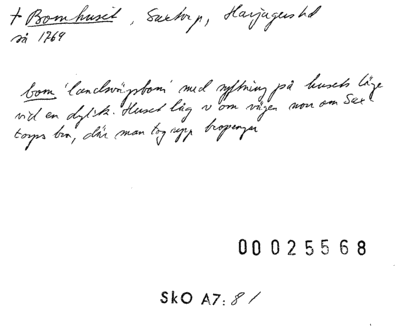 + Bomhuset, Saxtorp, Harjagers hd
så 1769
bom 'landsvägsbom' med syftning på husets läge
vid en dylik. Huset låg v om vägen norr om Sax-
torps bro, där man tog upp bropengar
00025568
SkO A7: 81